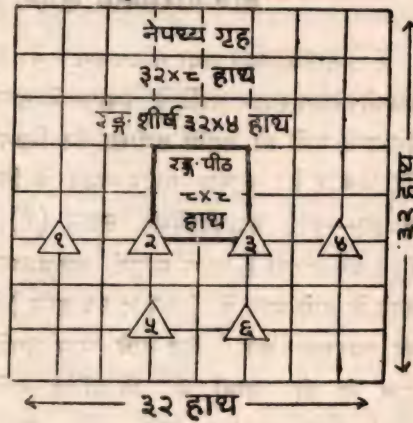 नेपथ्य गृह
३२×८ हाथ
रङ्ग शीर्ष ३२×४ हाथ
रङ्ग पीठ
८×८
हाथ
१ २ ३ ४
५ ६
३२ हाथ
३२ हाथ